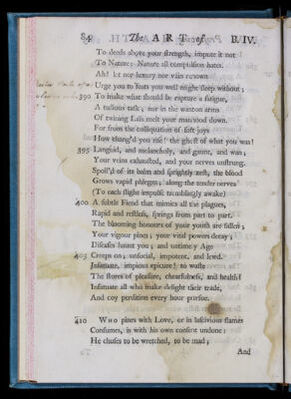 84 The ART of B. IV.
To deeds above your strength, impute it not
To Nature: Nature all compulsion hates.
Ah! let nor luxury nor vain renown
Urge you to feats you well might sleep without;
390 To make what should be rapture a fatigue,
A tedious task; nor in the wanton arms
Of twining Laïs melt your manhood down.
For from the colliquation of soft joys
How chang'd you rise! the ghost of what you was!
395 Languid, and melancholy, and gaunt, and wan;
Your veins exhausted, and your nerves unstrung.
Spoil'd of its balm and sprightly zest, the blood
Grows vapid phlegm; along the tender nerves
(To each slight impulse tremblingly awake)
400 A subtle Fiend that mimics all the plagues,
Rapid and restless, springs from part to part.
The blooming honours of your youth are fallen;
Your vigour pines; your vital powers decay;
Diseases haunt you; and untimely Age
405 Creeps on; unsocial, impotent, and lewd.
Infatuate, impious epicure! to waste
The stores of pleasure, chearfulness, and health!
Infatuate all who make delight their trade,
And coy perdition every hour pursue.
410 WHO pines with Love, or in lascivious flames
Consumes, is with his own consent undone:
He chuses to be wretched, to be mad;
And